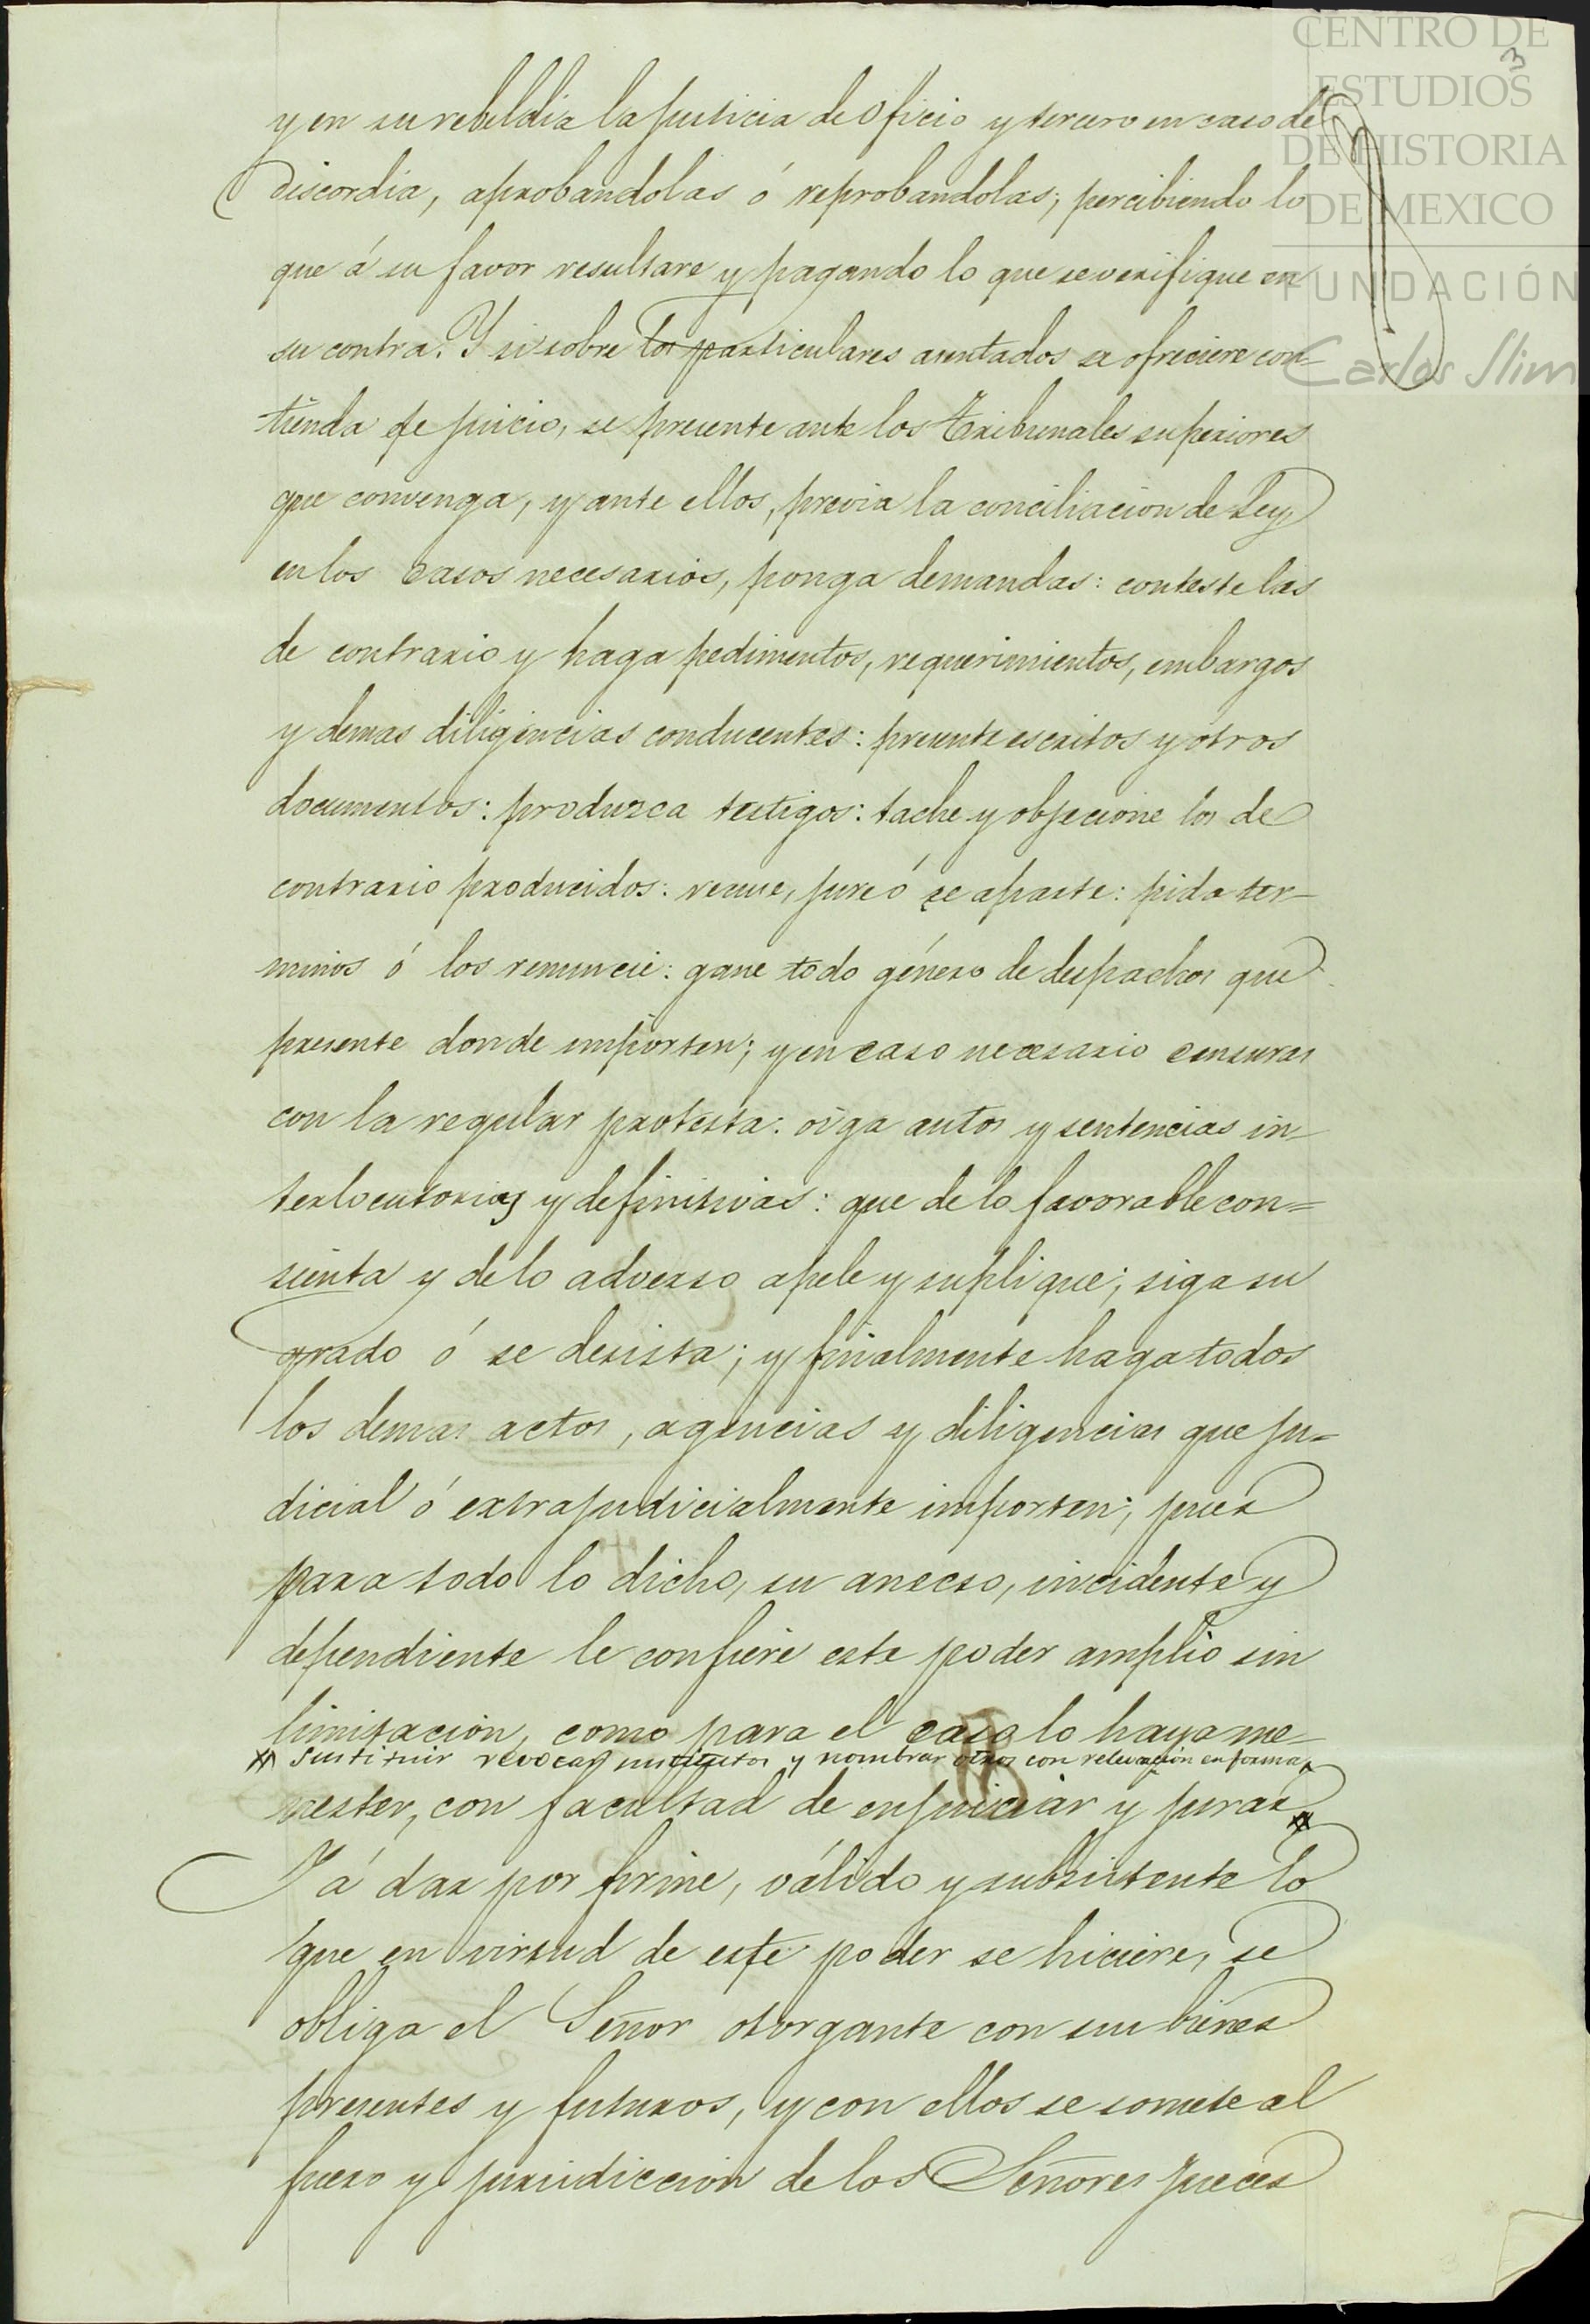 CENTRO DE
ESTUDIOS
DE HISTORIA
DE MEXICO
FUNDACIÓN
Carlos Slim
3
y en su rebeldia la Justicia de Oficio y tercero en caso de
discordia, aprobandolas ó reprobandolas; percibiendo lo
que á su favor resultare y pagando lo que se verifique en
su contra. Y si sobre los particulares asentados se ofreciere con-
tienda de juicio, se presente ante los Tribunales superiores
que convenga, y ante ellos, previa la conciliacion de Ley
en los casos necesarios, ponga demandas: conteste las
de contrario y haga pedimentos, requerimientos, embargos
y demas diligencias conducentes: presente escritos y otros
documentos: produzca testigos: tache y objecione los de
contrario producidos: recuse, jure ó se aparte: pida ter-
minos ó los renuncie: gane todo género de despachos que
presente donde importen; y en caso necesario censuras
con la regular protesta: oiga autos y sentencias in-
terlocutorias y definitivas: que de lo favorable con=
sienta y de lo adverso apele y suplique; siga su
grado ó se desista; y finalmente haga todos
los demas actos, agencias y diligencias que ju=
dicial ó extrajudicialmente importen; pues
para todo lo dicho, su anecso, incidente y
dependiente le confiere este poder amplio sin
limitacion, como para el caso lo haya me-
sustituir revocar sustitutos y nombrar otros con relevacion en forma
nester, con facultad de enjuiciar y jurar
Y á dar por firme, válido y subsistente lo
que en virtud de este poder se hiciere, se
obliga el Señor otorgante con sus bienes
presentes y futuros, y con ellos se somete al
fuero y jurisdiccion de los Señores Jueces